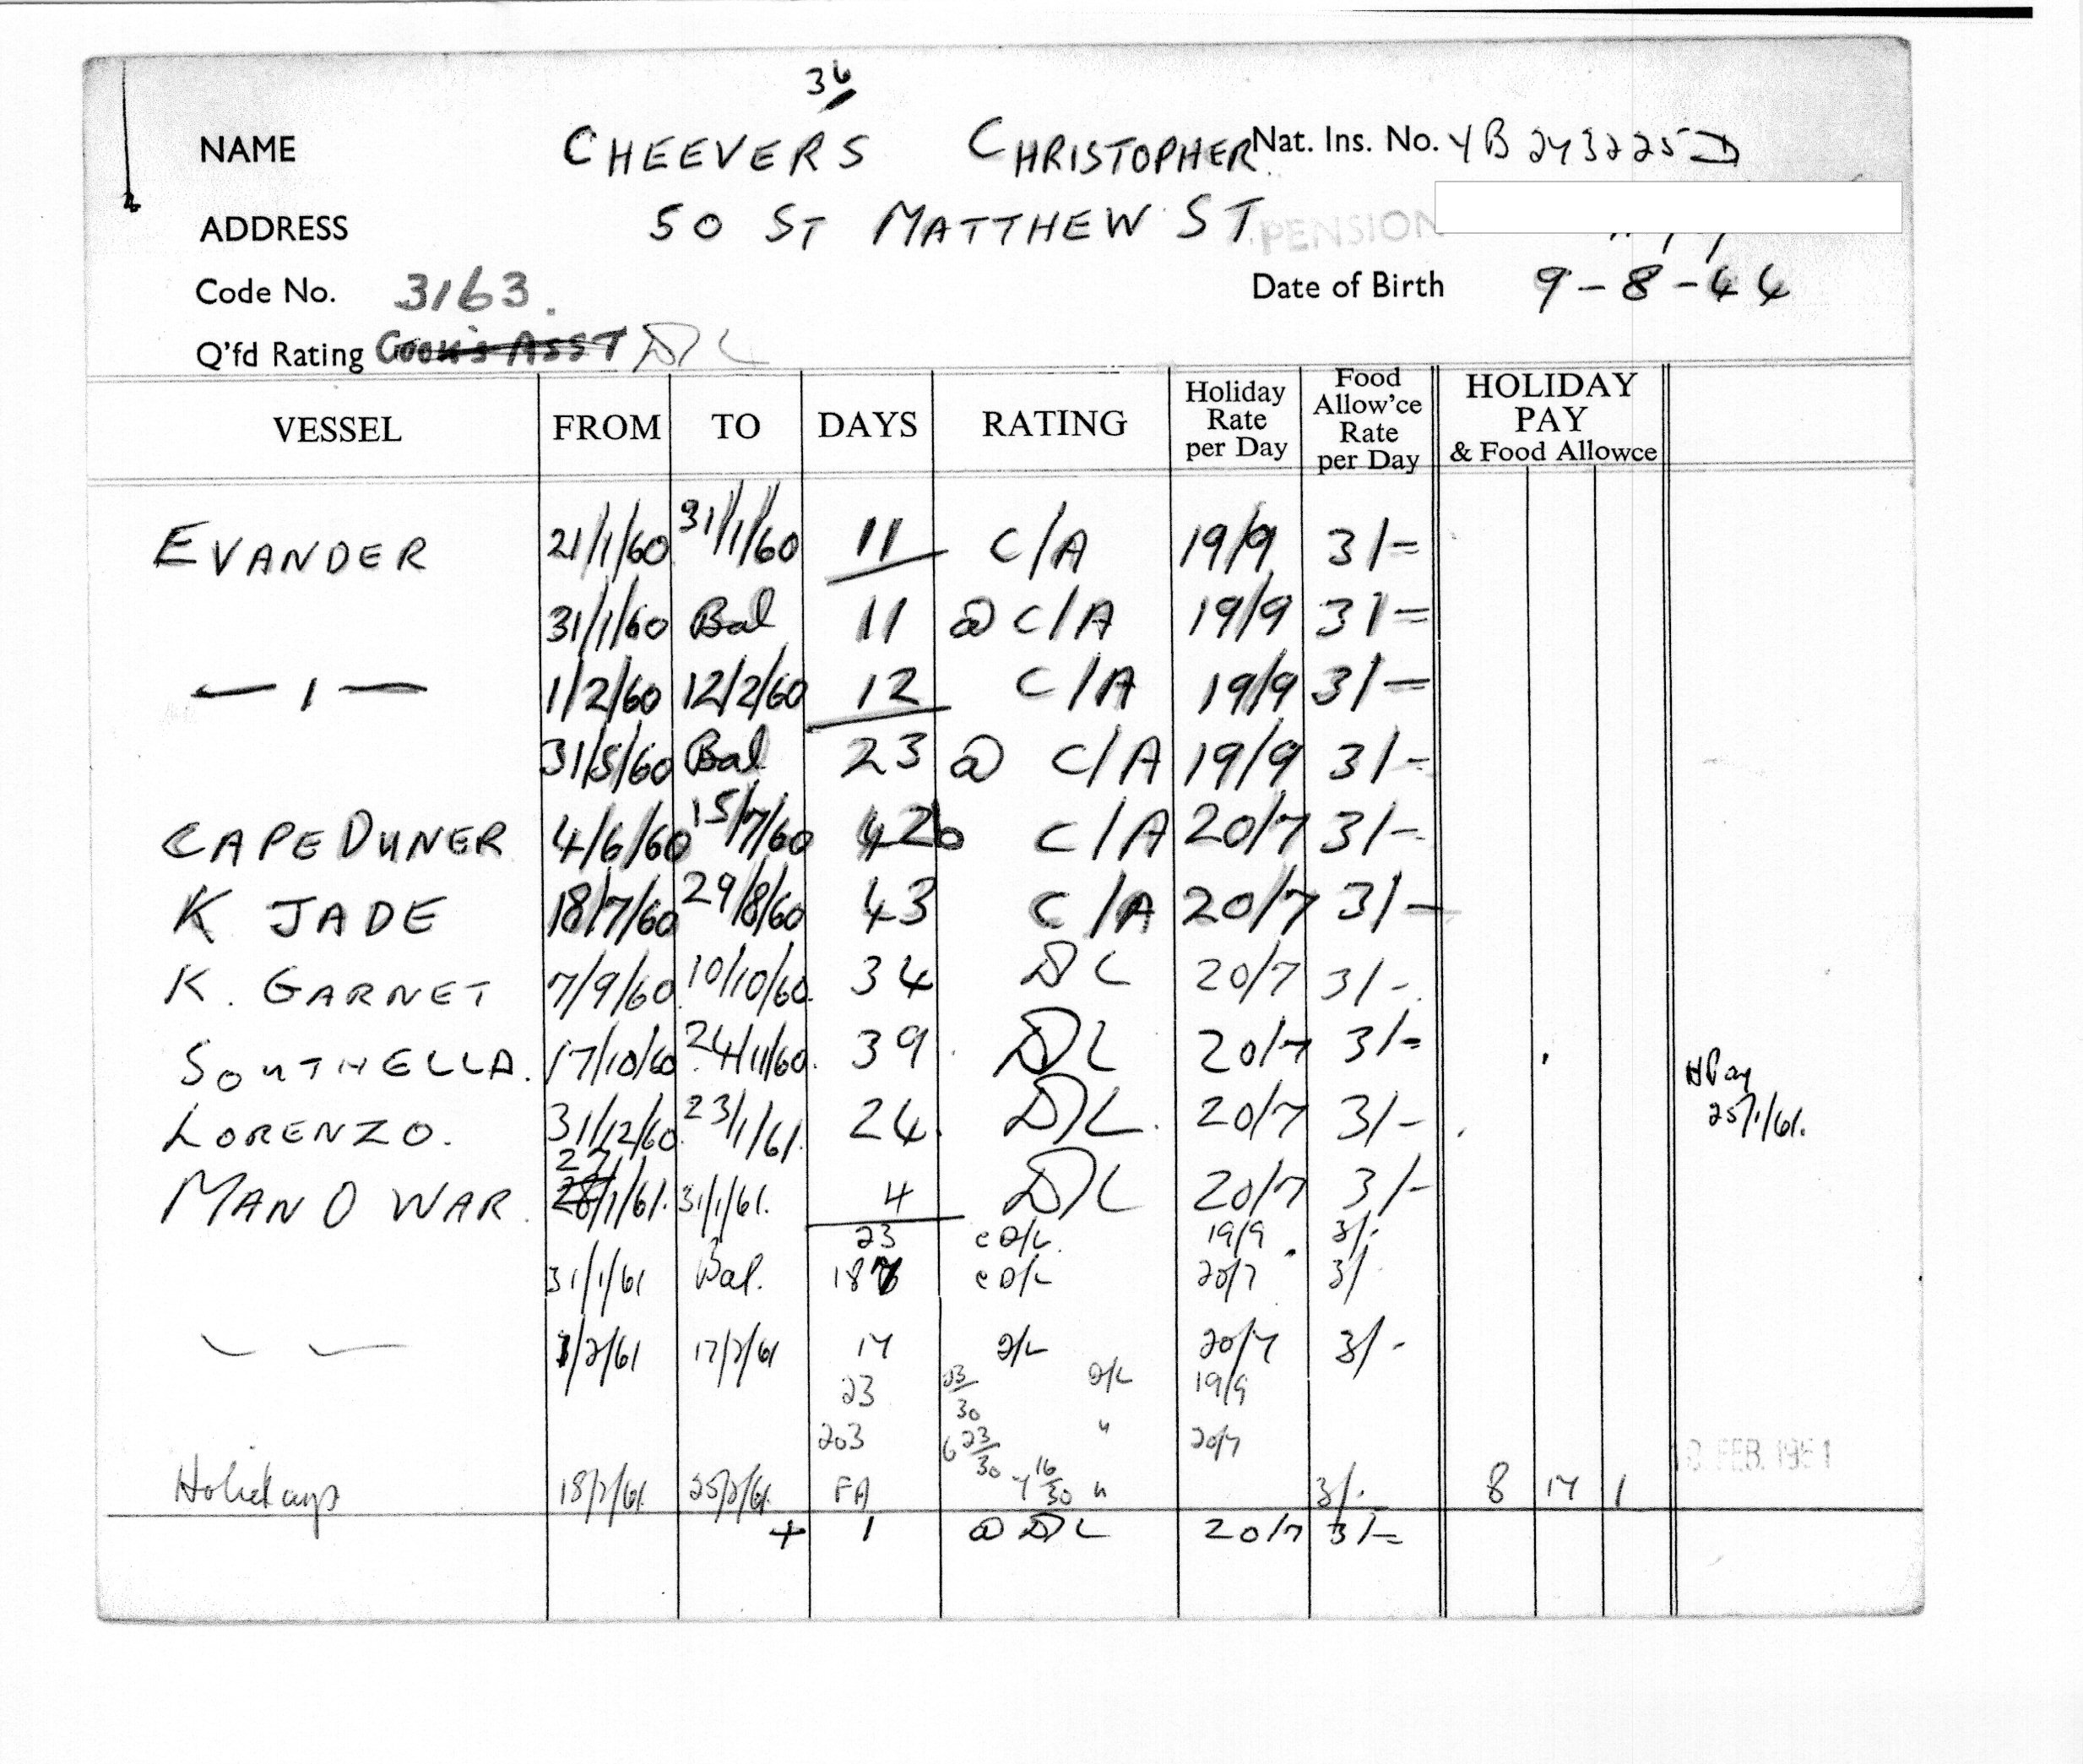 36
NAME CHEEVERS CHRISTOPHER Nat. Ins. No. YB 243225D
ADDRESS 50 ST MATTHEW ST PENSION
Code No. 3163. Date of Birth 9-8-44
Q'fd Rating COOK'S ASST D/L
VESSEL FROM TO DAYS RATING Holiday Rate per Day Food Allow'ce Rate per Day HOLIDAY PAY & Food Allowce
EVANDER 21/1/60 31/1/60 11 C/A 19/9 3/=
31/1/60 Bal 11 @ C/A 19/9 3/=
— 1 — 1/2/60 12/2/60 12 C/A 19/9 3/-
31/5/60 Bal 23 @ C/A 19/9 3/-
CAPE DUNER 4/6/60 15/7/60 42 C/A 20/7 3/-
K JADE 18/7/60 29/8/60 43 C/A 20/7 3/-
K. GARNET 7/9/60 10/10/60. 34 DL 20/7 3/-.
SOUTHELLA. 17/10/60 24/11/60. 39 DL 20/7 3/= H Pay
LORENZO. 31/12/60. 23/1/61. 24. D/L. 20/7 3/- 25/1/61.
27
MAN O WAR. 28/1/61. 31/1/61. 4 D/L 20/7 3/-
23 @ D/L. 19/9 3/-
31/1/61 Bal. 187 @ D/L 20/7 3/
1/2/61 17/2/61 17 D/L 20/7 3/-
23 23/30 D/L 19/9
203 6 23/30 " 20/7
Holidays 18/2/61. 25/2/61. FA 7 16/30 " 3/- 8 17 1 FEB. 1961
+ 1 @ DL 20/7 3/=